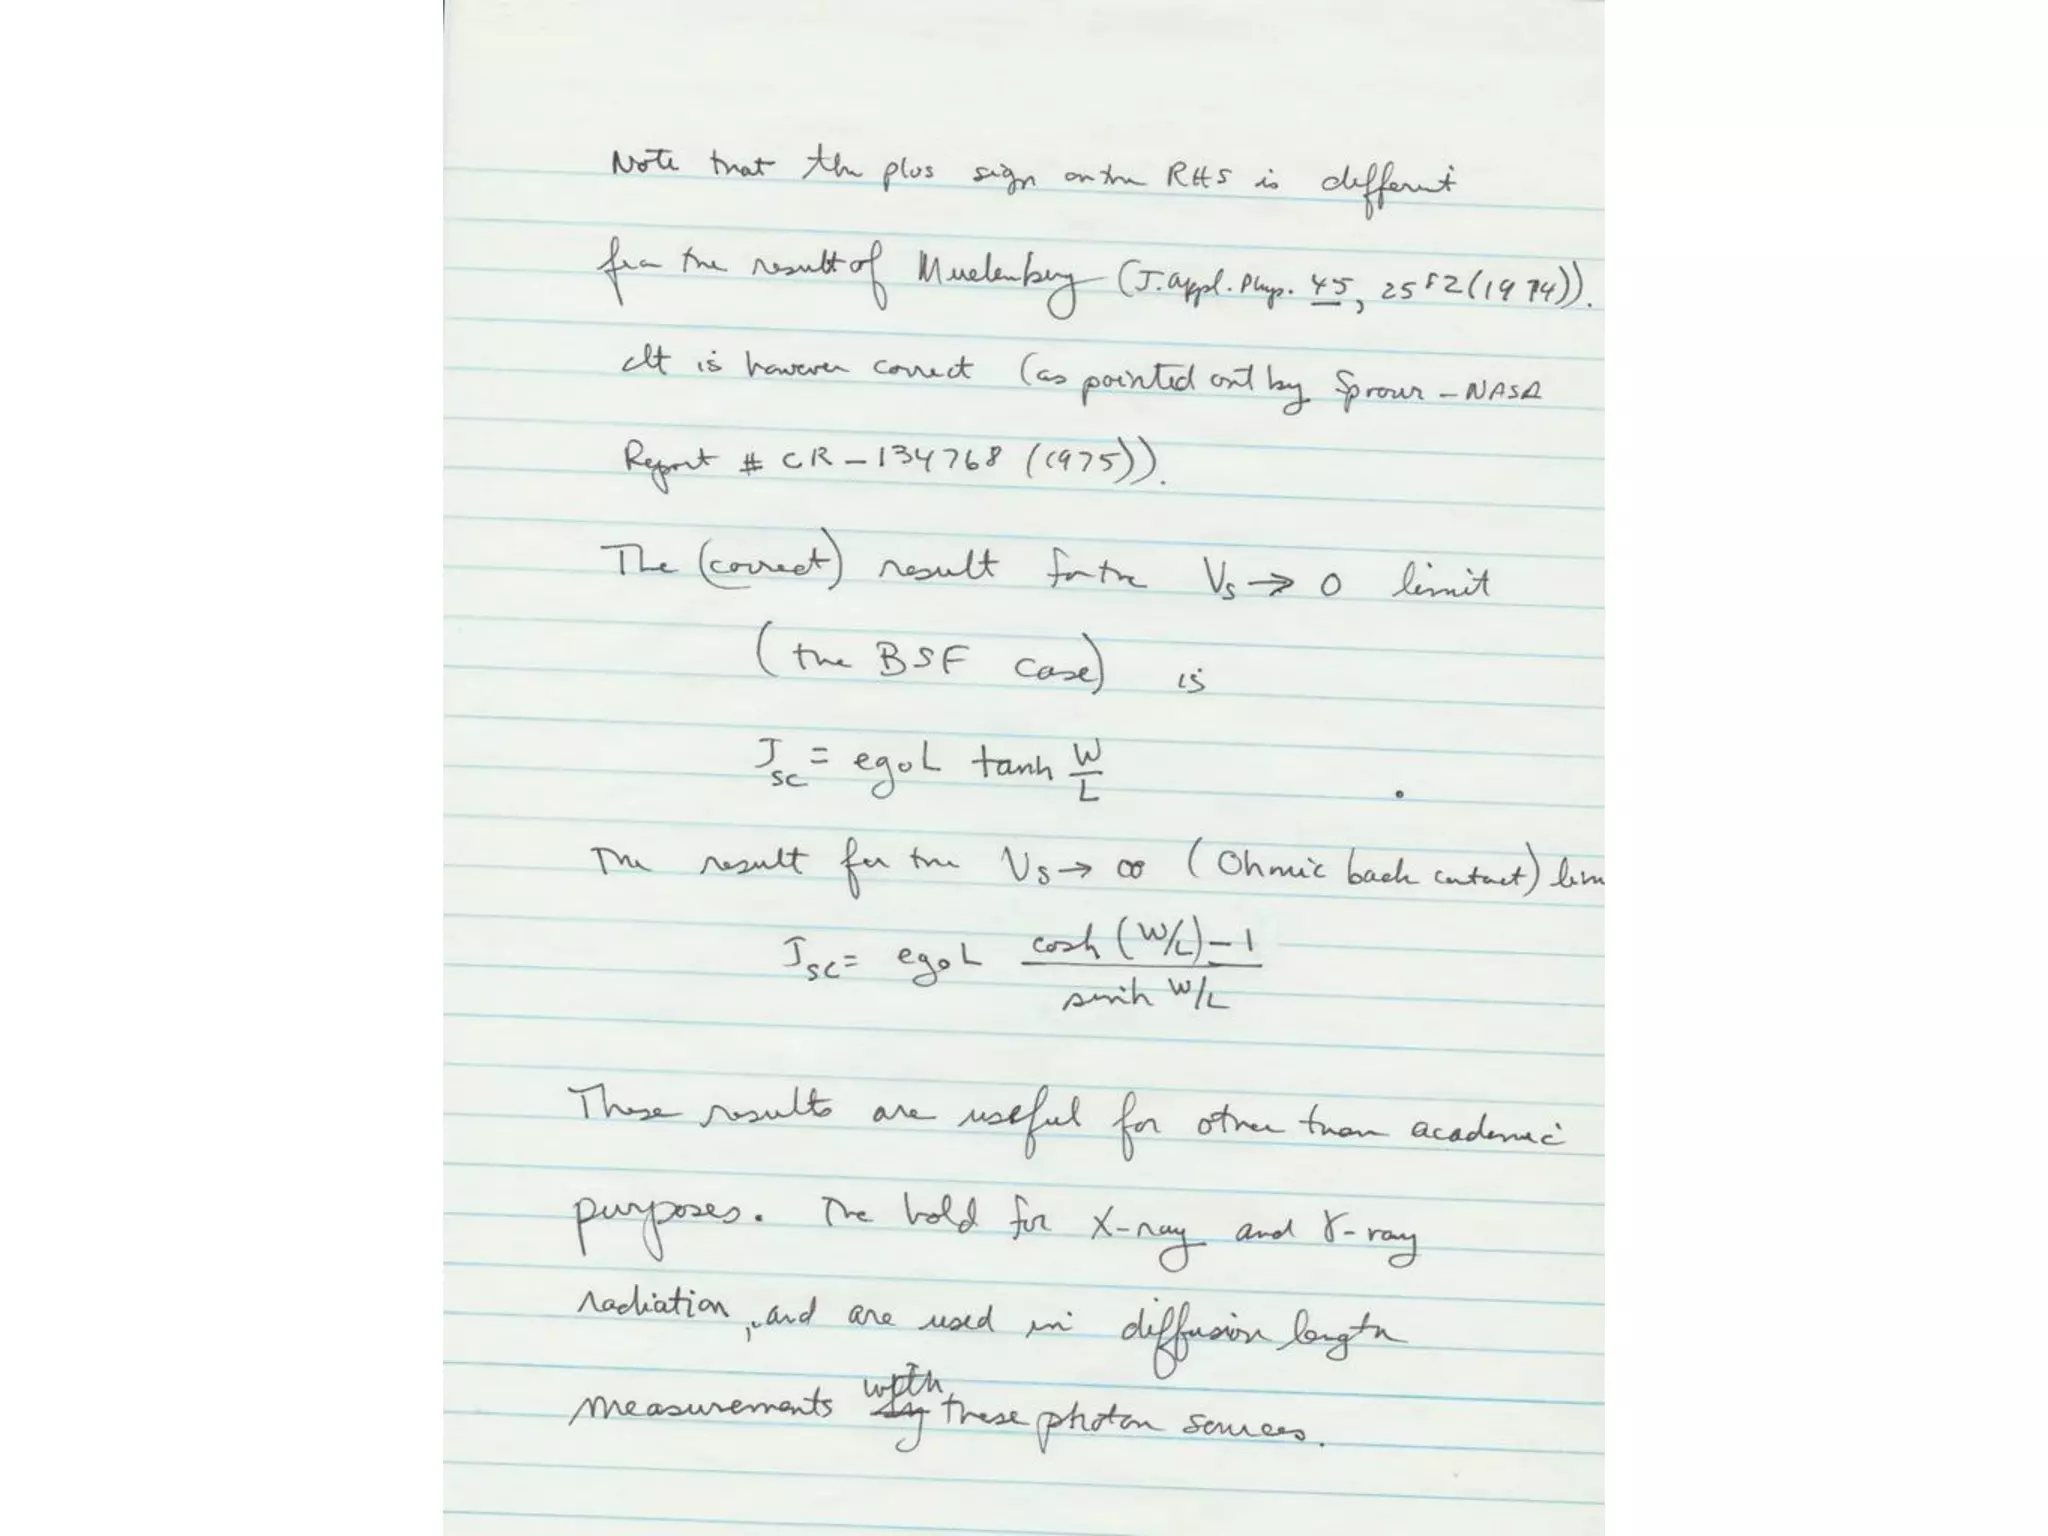 Note that the plus sign on the RHS is different
from the result of Muelenberg (J. appl. Phys. 45, 2582 (1974)).
It is however correct (as pointed out by Sprour - NASA
Report # CR-134768 (1975)).
The (correct) result for the Vs → 0 limit
(the BSF case) is
Jsc = eg₀L tanh W/L
The result for the Vs → ∞ (Ohmic back contact) lim
Jsc = eg₀L (cosh (W/L) - 1)/(sinh W/L)
These results are useful for other than academic
purposes. The hold for X-ray and γ-ray
radiation, and are used in diffusion length
measurements with these photon sources.